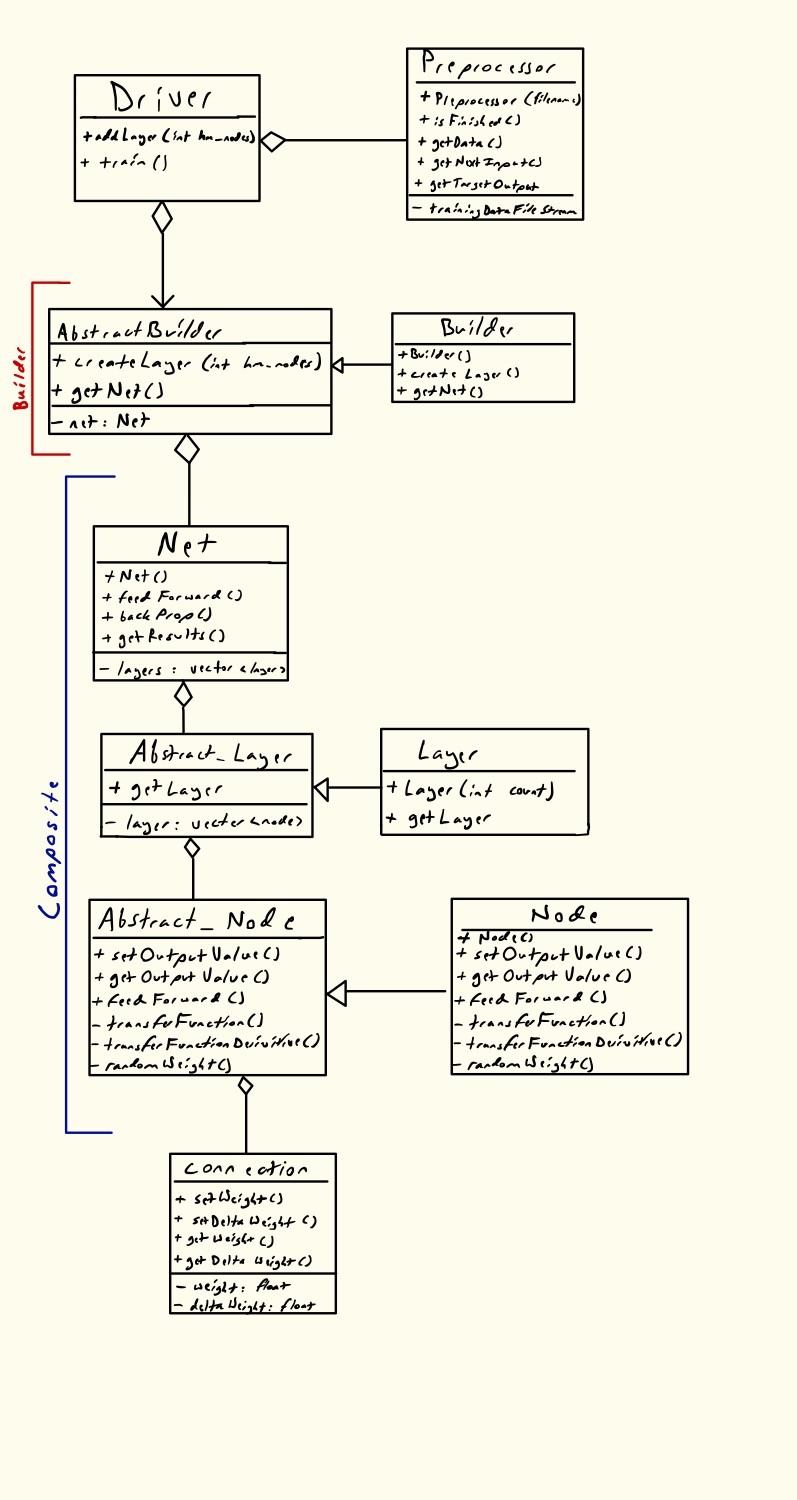 Driver
+ addLayer (int hm_nodes)
+ train ()
Preprocessor
+ Preprocessor (filename)
+ isFinished ()
+ getData ()
+ getNextInput ()
+ getTargetOutput
- trainingDataFileStream
Builder
AbstractBuilder
+ createLayer (int hm_nodes)
+ getNet ()
- net : Net
Builder
+ Builder ()
+ create Layer ()
+ getNet ()
Composite
Net
+ Net ()
+ feed Forward ()
+ back Prop ()
+ getResults ()
- layers : vector <layer>
Abstract_Layer
+ getLayer
- layer : vector <node>
Layer
+ Layer (int count)
+ getLayer
Abstract_Node
+ setOutput Value ()
+ get Output Value ()
+ feed Forward ()
- transferFunction ()
- transferFunction Derivitive ()
- randomWeight ()
Node
+ Node ()
+ setOutput Value ()
+ get Output Value ()
+ feed Forward ()
- transferFunction ()
- transferFunction Derivitive ()
- randomWeight ()
Connection
+ setWeight ()
+ setDelta Weight ()
+ get Weight ()
+ get Delta Weight ()
- weight : float
- deltaWeight : float